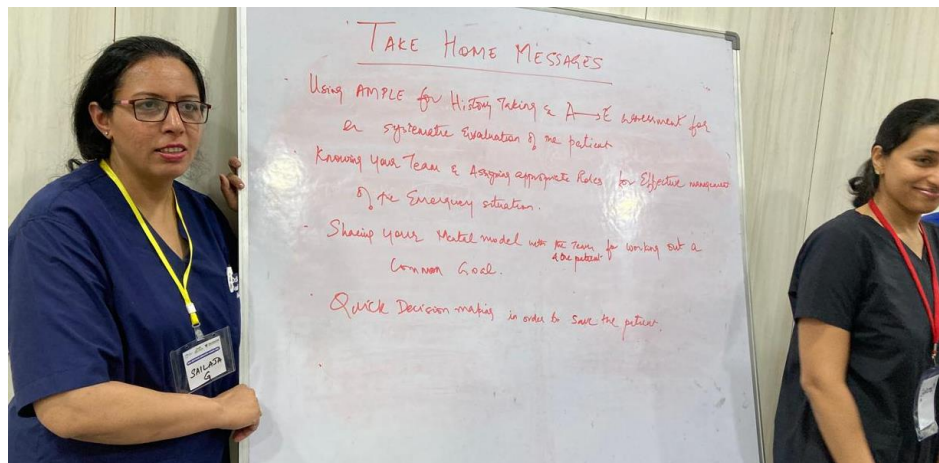 TAKE HOME MESSAGES
Using AMPLE for History Taking & A→E assessment for
a systematic Evaluation of the patient
Knowing your Team & Assigning appropriate Roles for Effective management
of the Emergency situation.
- Sharing your Mental model with the Team for working out a
& the patient
Common Goal.
Quick Decision making in order to save the patient.
SAILAJA
G